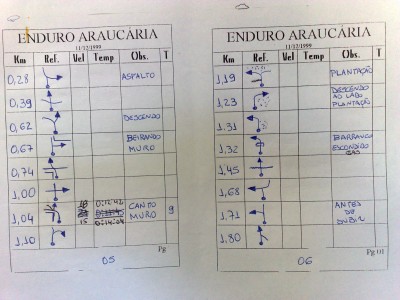 ENDURO ARAUCÁRIA
11/12/1999
Km Ref. Vel Temp Obs. T
0,28 ASFALTO
0,39
0,62 DESCENDO
0,67 BEIRANDO MURO
0,74
1,00
1,04 0:12:42 CANTO MURO 9
15 0:14:04
1,10
Pg
05
ENDURO ARAUCÁRIA
11/12/1999
Km Ref. Vel Temp Obs. T
1,19 PLANTAÇÃO
1,23 DESCENDO
AO LADO
PLANTAÇÃO
1,31
1,32 BARRANCO
ESCONDIDO
1,45
1,68
1,71 ANTES
DE
SUBIR
1,80
Pg
06